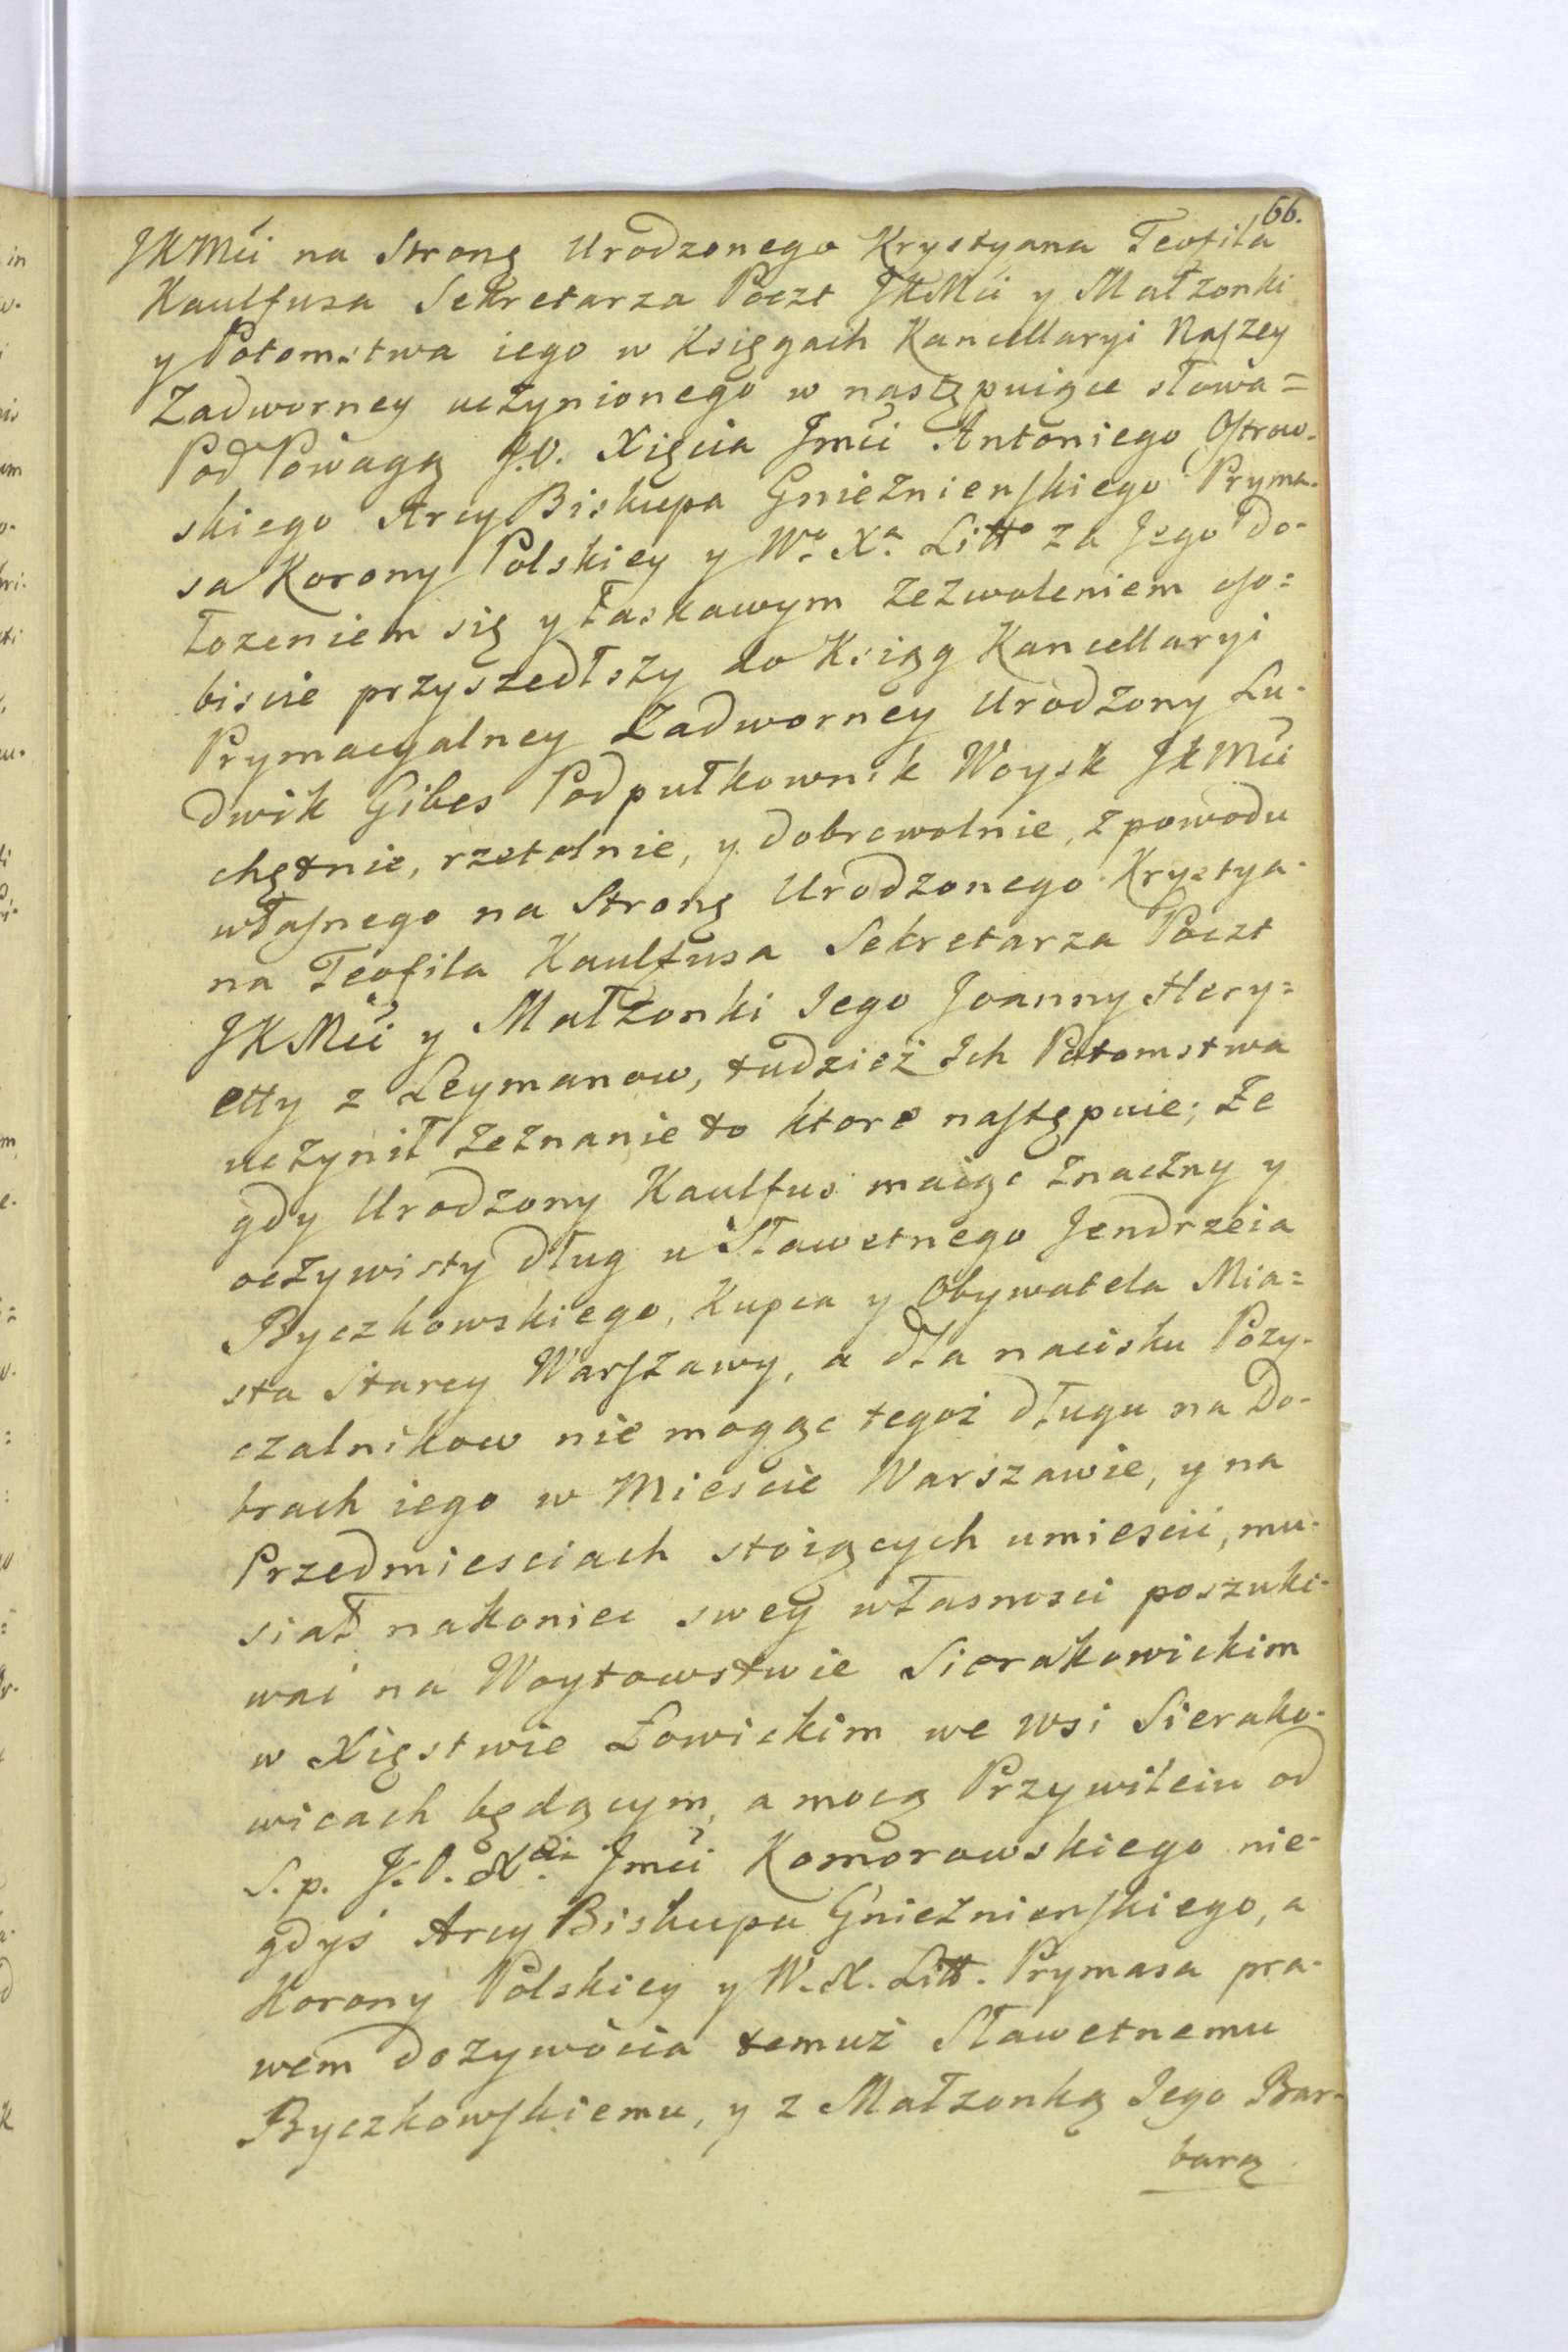 66.
JKMći na Stronę Urodzonego Krystyana Teofila
Kaulfusa Sekretarza Poczt JKMći y Małżonki
y Potomstwa iego w Księgach Kancellaryi Naszey
Zadworney uczynionego w następuiące słowa=
Pod Powagą J.O. Xięcia Jmći Antoniego Ostrow-
skiego Arcy Biskupa Gnieznienskiego Pryma-
sa Korony Polskiey y Wo. Xa. Litto za Jego do-
łozeniem się y łaskawym zezwoleniem oso=
biscie przyszedłszy do Ksiąg Kancellaryi
Prymacyalney Zadworney Urodzony Lu-
dwik Gibes Podpułkownik Woysk JKMći
chętnie, rzetelnie, y dobrowolnie, z powodu
własnego na Stronę Urodzonego Krystya-
na Teofila Kaulfusa Sekretarza Poczt
JKMći y Małżonki Jego Joanny Hery=
etty z Leymanow, tudzież Ich Potomstwa
uczynił zeznanie to ktore następuie; że
gdy Urodzony Kaulfus maiąc znaczny y
oczywisty dług u Sławetnego Jendrzeia
Byczkowskiego, Kupca y Obywatela Mia=
sta Starey Warszawy, a dla nacisku Pozy-
czalnikow nie mogąc tegoż długu na Do-
brach iego w Miescie Warszawie, y na
Przedmiesciach stoiących umiescić, mu-
siał nakoniec swey własnosci poszuki-
wać na Woytowstwie Sierakowickim
w Xięstwie Łowickim we Wsi Sierako-
wicach będącym, a mocą Przywileiu od
S.p. J.O. Xcia Jmći Komorowskiego nie-
gdyś Arcy Biskupa Gnieznienskiego, a
Korony Polskiey y W.X. Litt. Prymasa pra-
wem dozywocia temuż Sławetnemu
Byczkowskiemu, y z Małzonką Jego Bar-
barą